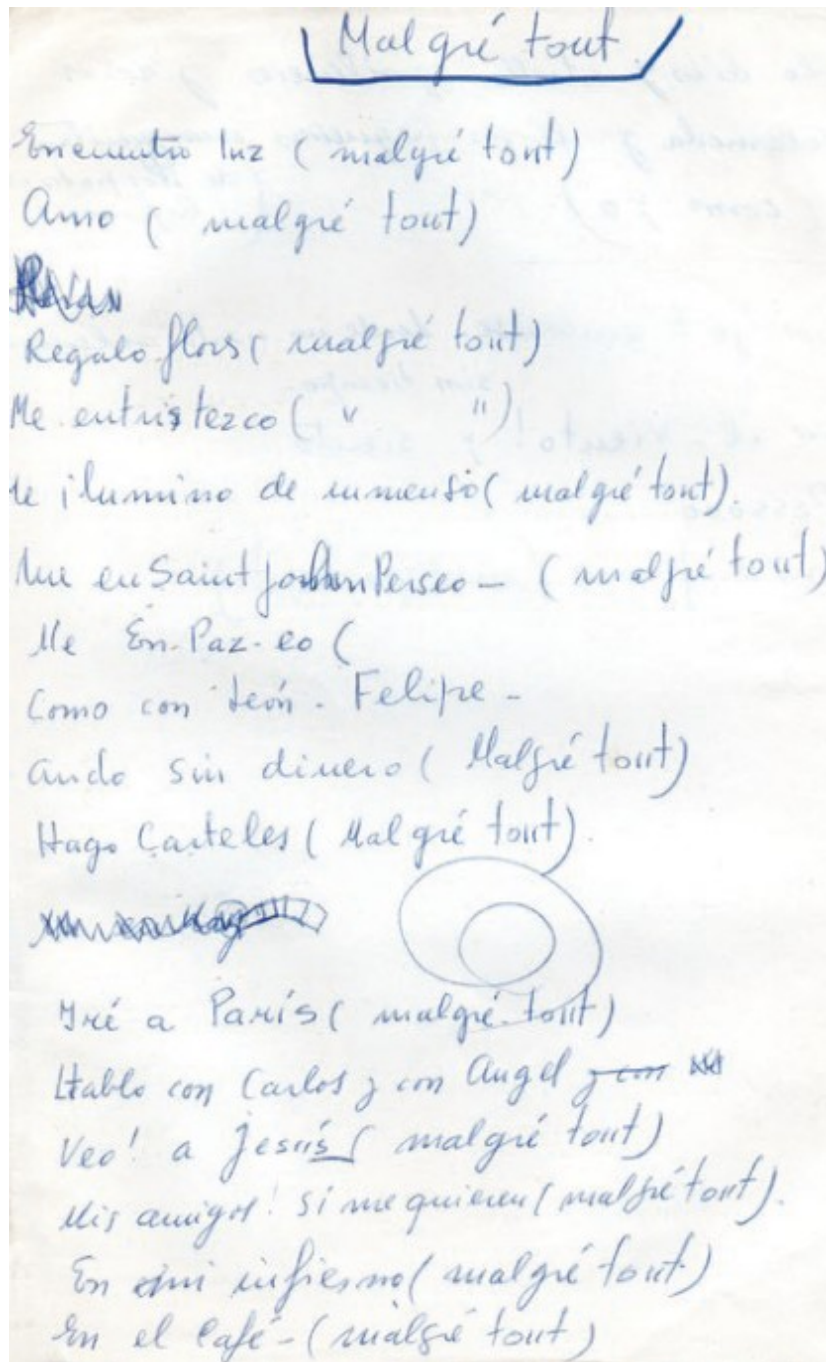 Malgré tout
Encuentro luz (malgré tout)
Amo (malgré tout)
Regalo flors (malgré tout)
Me entristezco ( " " )
Me ilumino de inmenso (malgré tout).
Me en Saint John Perseo - (malgré tout)
Me En-Paz-eo (
Como con León - Felipe -
Ando sin dinero (Malgré tout)
Hago Carteles (Malgré tout).
Iré a París (malgré tout)
Hablo con Carlos y con Angel y con
Veo! a Jesús (malgré tout)
Mis amigos! si me quieren (malgré tout).
En mi infierno (malgré tout)
En el Café - (malgré tout)